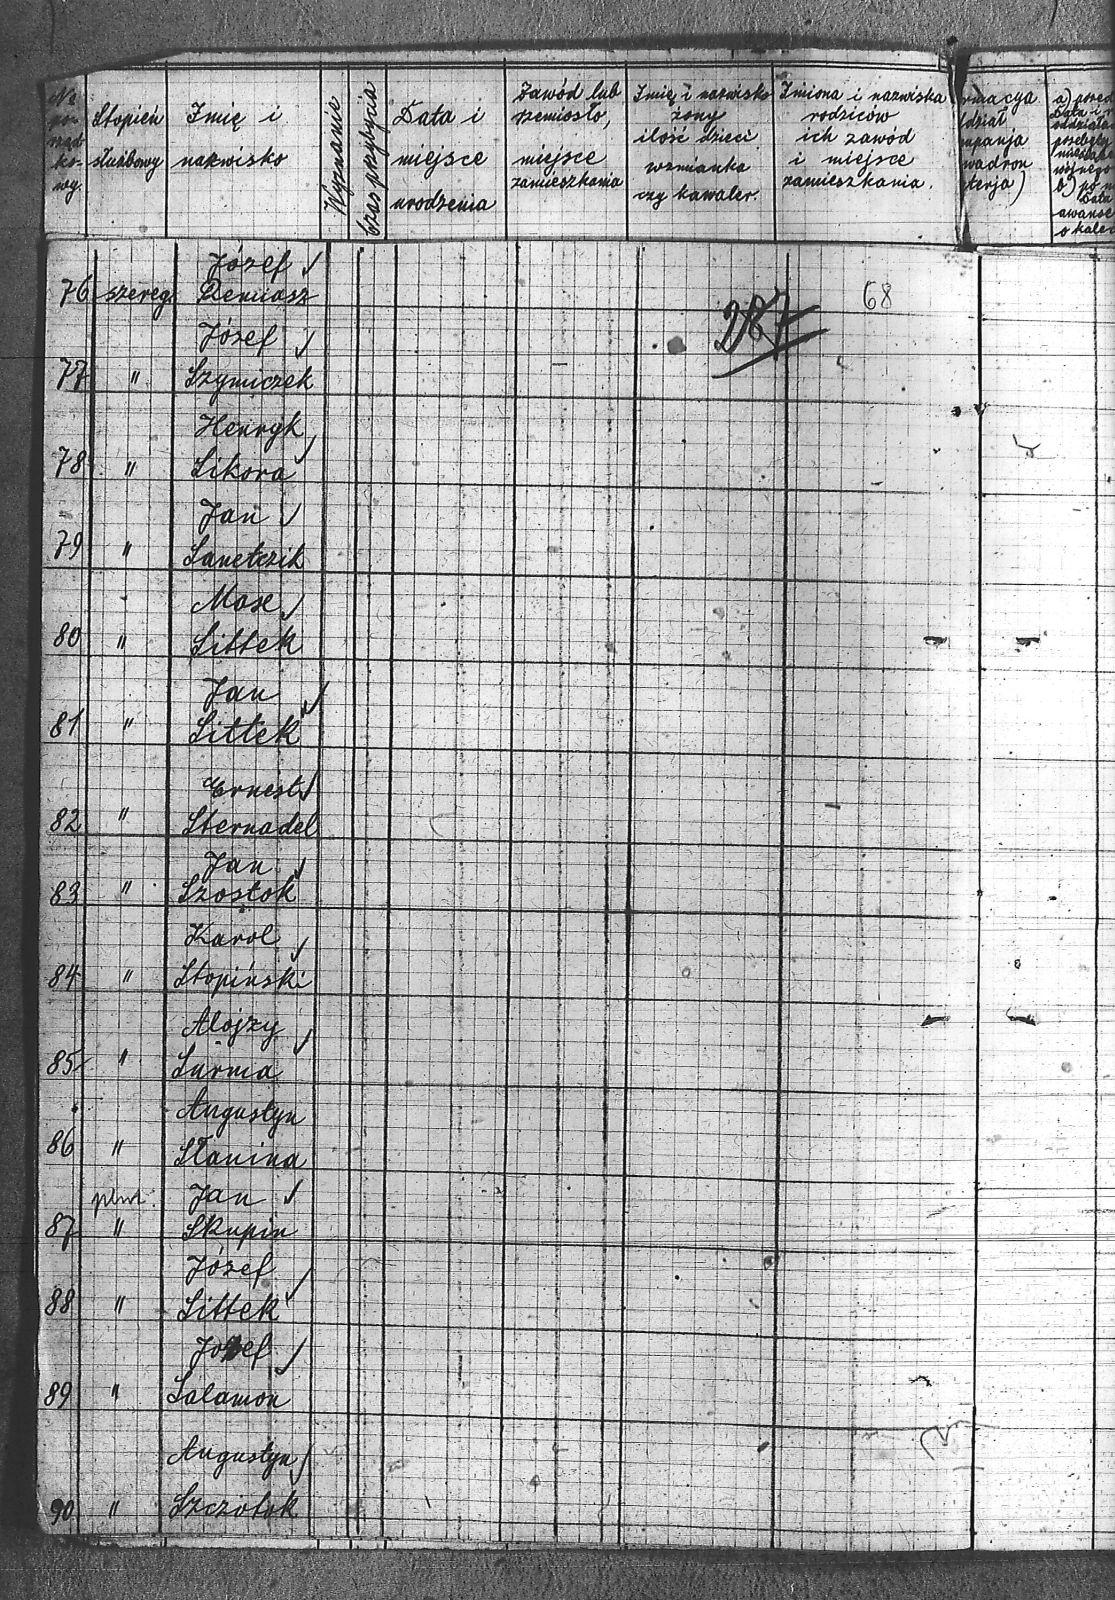 No po- rząd ko- wy.
Stopień służbowy
Imię i nazwisko
Wyznanie
Czas przybycia
Data i miejsce urodzenia
Zawód lub rzemiosło, miejsce zamieszkania
Imię i nazwisko żony ilość dzieci wzmianka czy kawaler.
Imiona i nazwiska rodziców ich zawód i miejsce zamieszkania.
rmacya
dział
mpanja
wadron
terja)
a) przed
Data i
oddziału
wojnego
b) po
Data
awanse
o kale
Józef
76 szereg.
287
68
Józef
77 " Szymiczek
Henryk
78 " Sikora
Jan
79 " Sanetczik
80 " Sittek
Jan
81 " Sittek
Ernest
82 " Sternadel
Jan
83 " Szostok
Karol
84 " Stopiński
Alojzy
85 " Surma
Augustyn
86 " Słanina
plut. Jan
87 " Skupin
Józef
88 " Sittek
Józef
89 " Salamon
Augustyn
90 " Szczotok